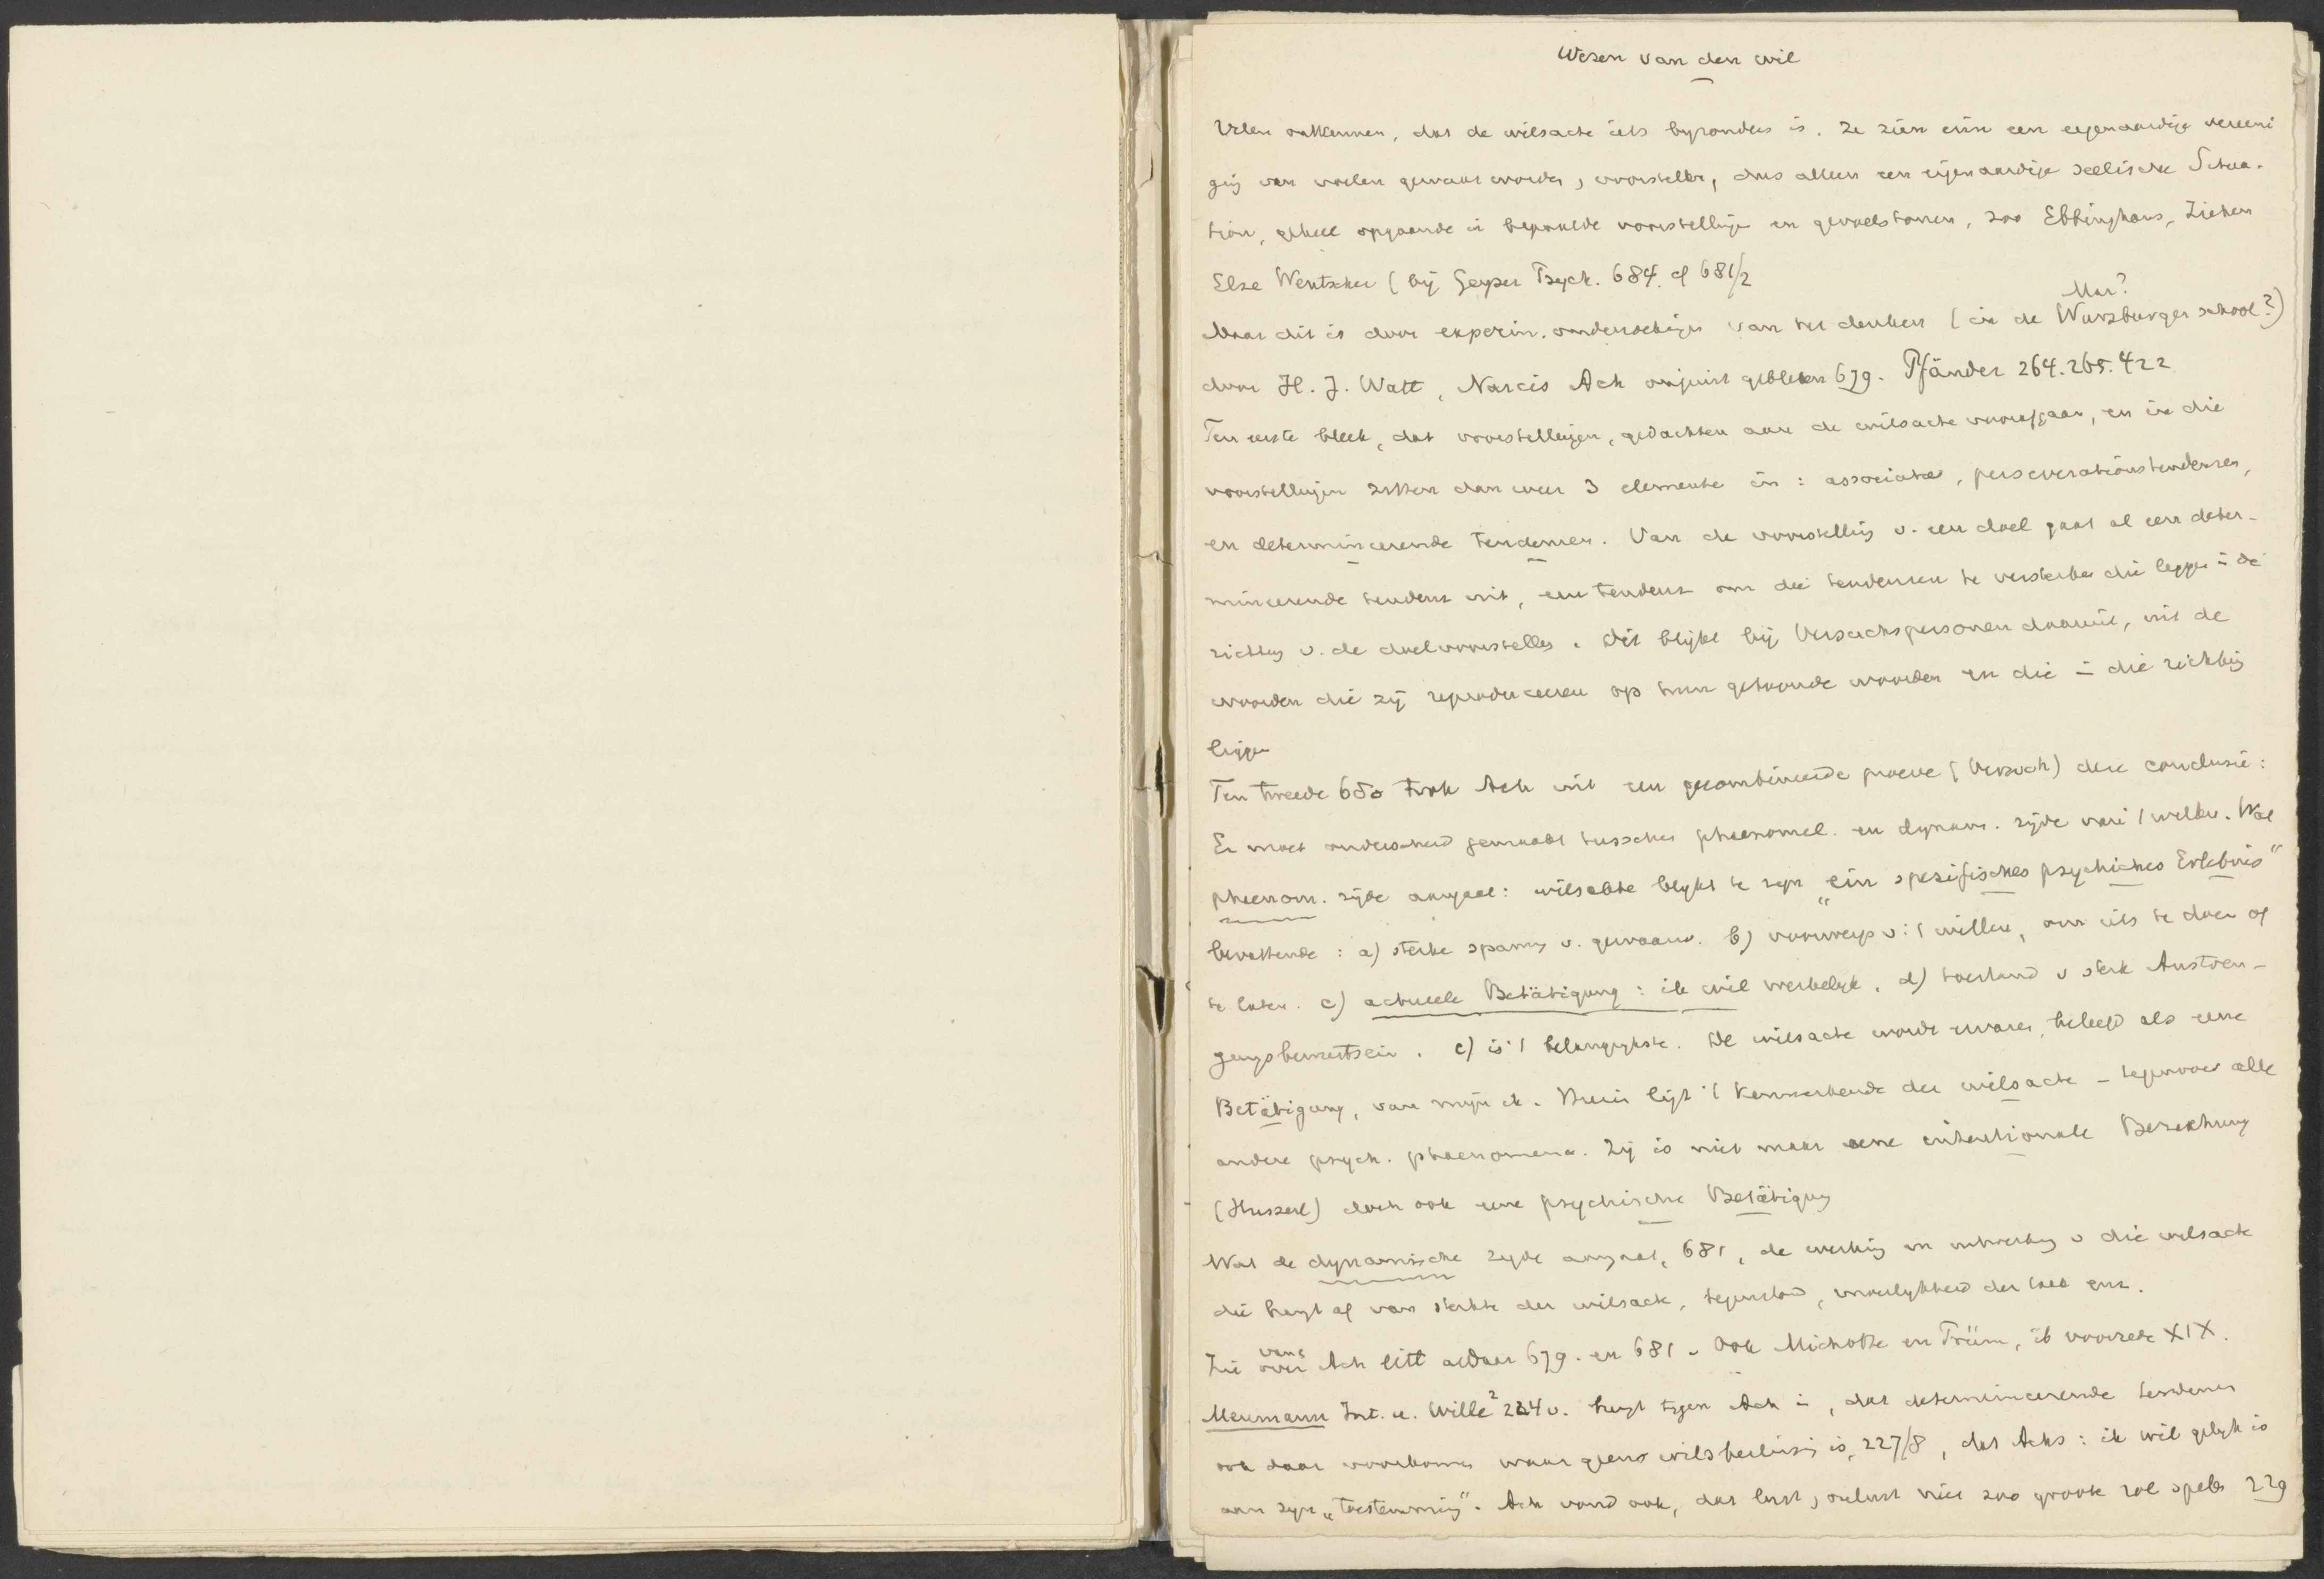 Wezen van den wil
Velen ontkennen, dat de wilsacte iets byzonders is. Ze zien erin een eigenaardige vereeni
ging van voelen gewaarworden, voorstellen, dus alleen een eigenaardige seelische Situa-
tion, geheel opgaande in bepaalde voorstellingen en gevoelstonen, zoo Ebbinghaus, Ziehen
Else Wentscher (bij Geyser Psych. 684. cf 681/2
Mar?
Maar dit is door experim. onderzoekingen van het denken (in de Wurzburger school?)
door H. J. Watt, Narcis Ach onjuist gebleken 679. Pfänder 264.265.422
Ten eerste bleek, dat voorstellingen, gedachten aan de wilsacte voorafgaan, en in die
voorstellingen zitten dan weer 3 elementen in: associatie, perseverationstendenzen,
en determineerende tendenzen. Van de voorstelling v. een doel gaat al een deter-
mineerende tendenz uit, een tendenz om die tendenzen te versterken die liggen in de
richting v. de doelvoorstelling. Dit blijkt bij Versuchspersonen daaruit, uit de
woorden die zij reproduceeren op hun getoonde woorden en die in die richting
liggen
Ten tweede 680 trok Ach uit een gecombineerde proeve (Versuch) deze conclusie:
Er moet onderscheid gemaakt tusschen phaenomel. en dynam. zijde van 't willen. Wat
phaenom. zijde aangaat: wilsacte blykt te zyn "ein spezifisches psychisches Erlebnis"
bevattende: a) sterke spanng v. gewaarw. b) voorwerp v. 't willen, om iets te doen of
te laten. c) actueele Betätigung: ik wil werkelyk. d) toestand v sterk Anstren-
gungsbewustsein. c) is 't belangrykste. De wilsacte wordt ervaren, beleefd als eene
Betätigung, van mijn ik. Hierin ligt 't kenmerkende der wilsacte - tegenover alle
andere psych. phaenomena. Zij is niet maar eene intentionale Beziehung
(Husserl) doch ook eene psychische Betätigung
Wat de dynamische zyde aangaat, 681, de werking en uitwerking v die wilsacte
die hangt af van sterkte der wilsacte, tegenstand, moeilykheid der taak enz.
van
Zie over Ach litt aldaar 679. en 681. Ook Michotte en Prüm, ib voorrede XIX.
Meumann Int. u. Wille² 224 v. brengt tegen Ach in, dat determineerende tendenzen
ook daar voorkomen waar geene wilsbeslissing is, 227/8, dat Achs: ik wil gelyk is
aan zyn „toestemming". Ach vond ook, dat lust, onlust niet zoo groote rol spelen 229